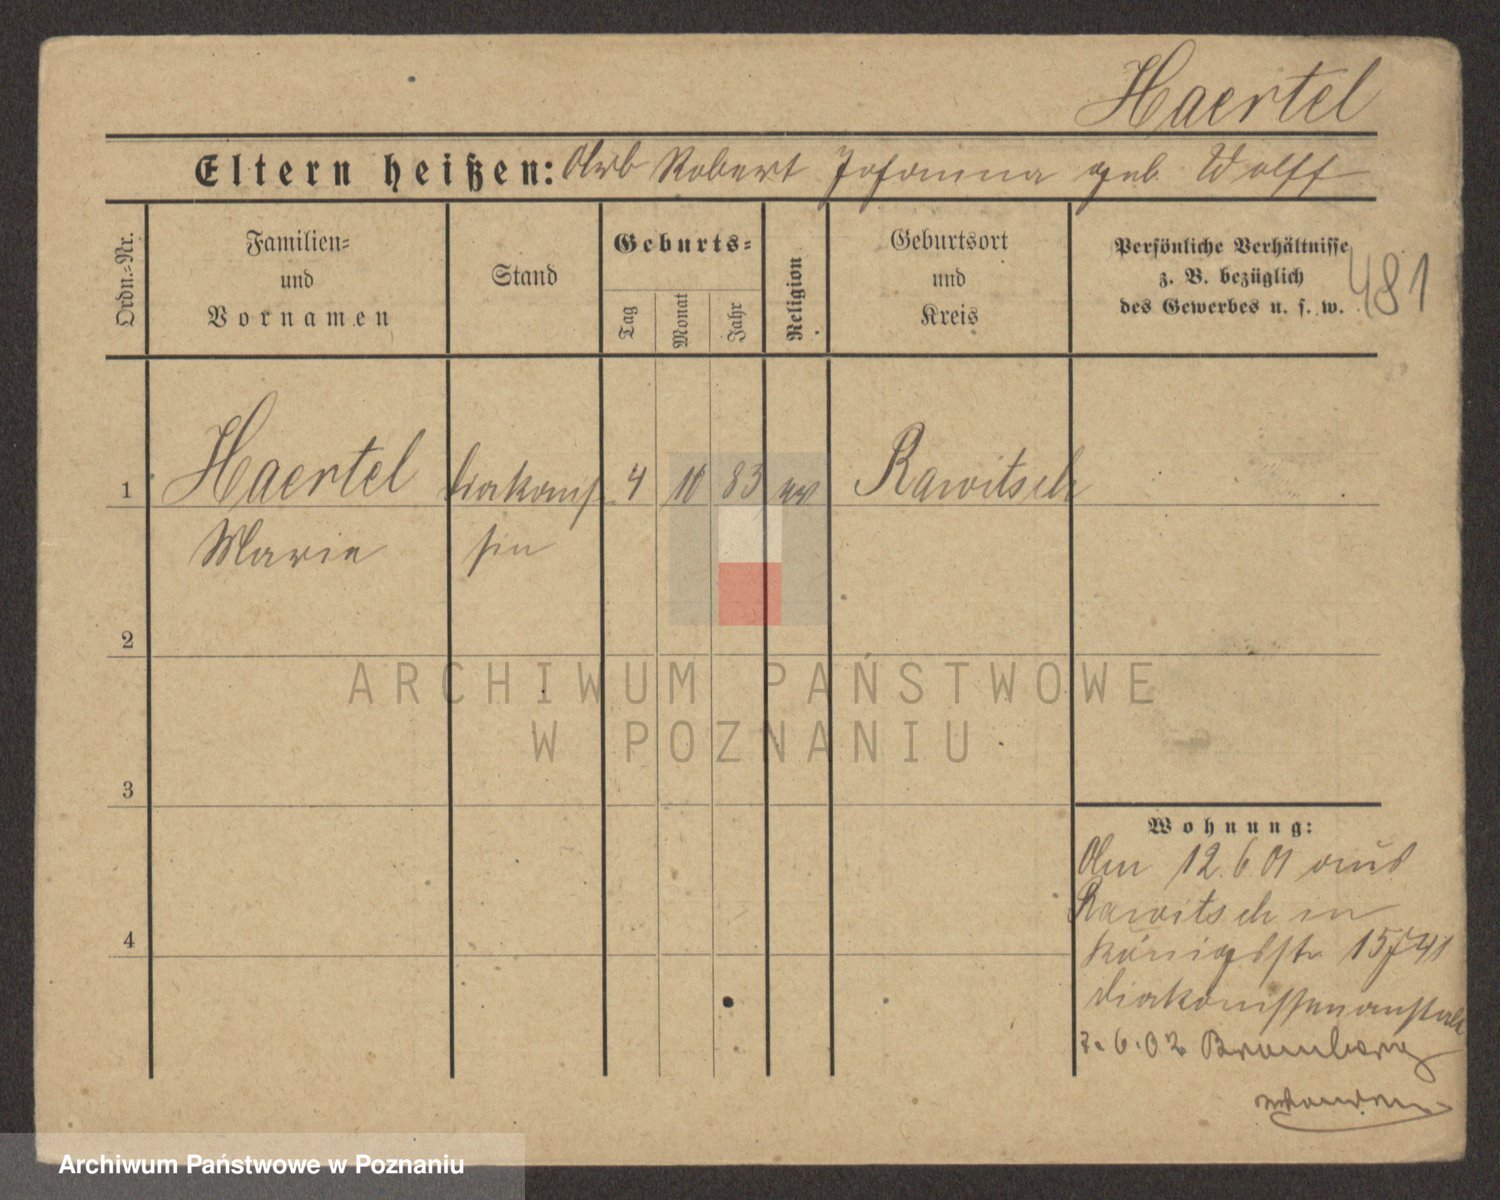 Haertel
Eltern heißen: Arb Robert Johanna geb. Wolff
Ordn.=Nr.
Familien=
und
Vornamen
Stand
Geburts=
Tag
Monat
Jahr
Religion
Geburtsort
und
Kreis
Persönliche Verhältnisse
z. B. bezüglich
des Gewerbes u. s. w.
481
1
Haertel
Diakonis
4
10
83
ev
Rawitsch
Marie
sin
2
3
4
Wohnung:
Am 12.6.01 aus
Rawitsch in
Königsstr
Diakonissenanstalt
7.6.02 Bromberg
ARCHIWUM PAŃSTWOWE
W POZNANIU
Archiwum Państwowe w Poznaniu